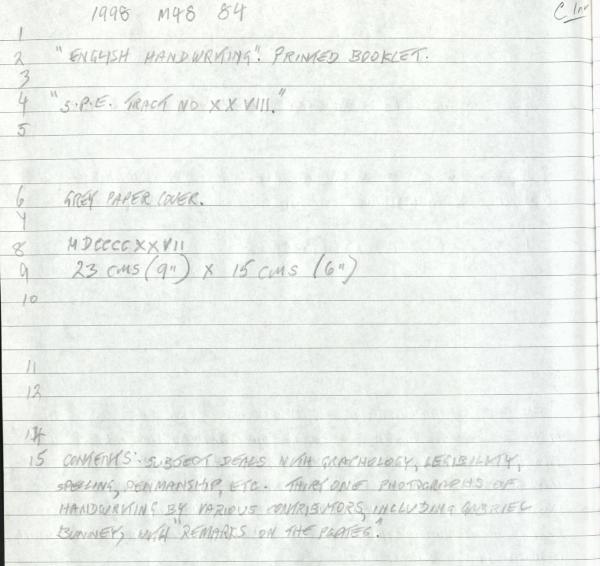 1998 M48 84
C Inv
1
2 "ENGLISH HANDWRITING". PRINTED BOOKLET.
3
4 "S.P.E. TRACT NO XXVIII."
5
6 GREY PAPER COVER.
7
8 MDCCCCXXVII
9 23 CMS (9") X 15 CMS (6")
10
11
12
14
15 CONTENTS: SUBJECT DEALS WITH GRAPHOLOGY, LEGIBILITY,
SPELLING, PENMANSHIP, ETC. THIRTY ONE PHOTOGRAPHS OF
HANDWRITING BY VARIOUS CONTRIBUTORS, INCLUDING GABRIEL
BUNNEY, WITH "REMARKS ON THE PLATES".